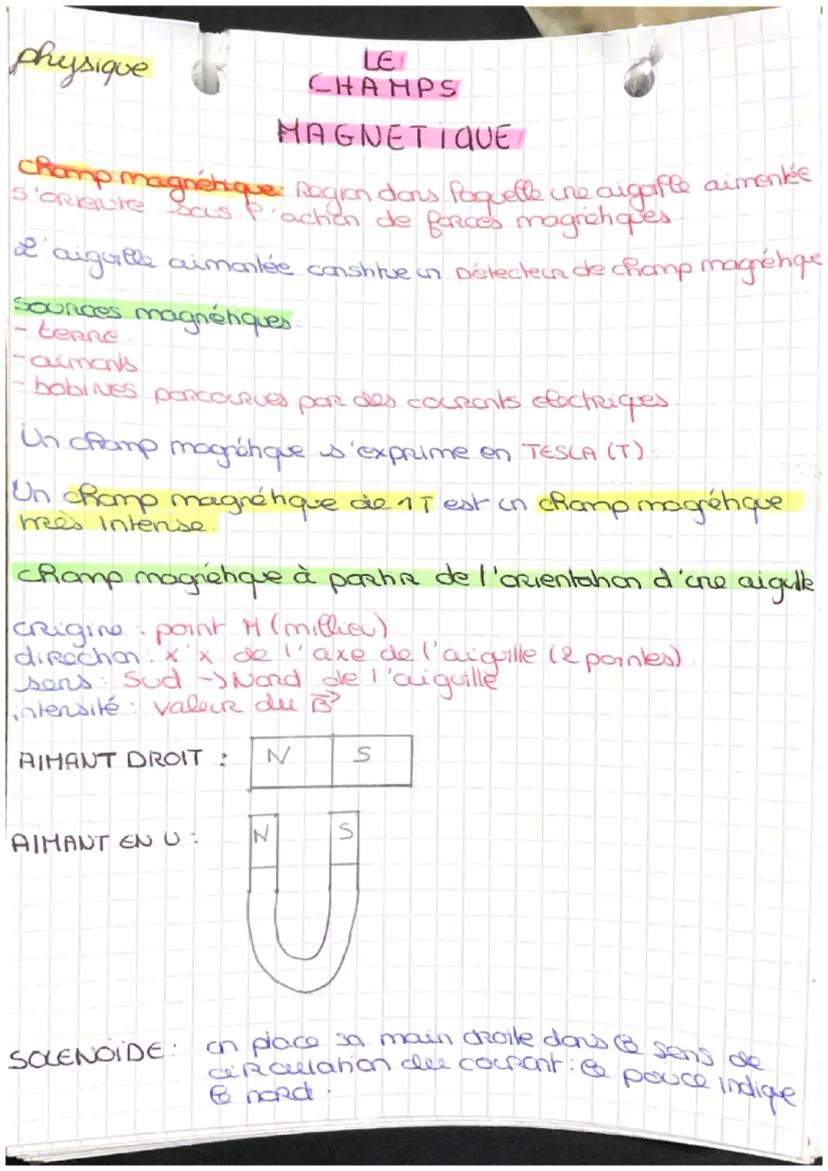 physique
LE
CHAMPS
MAGNETIQUE
champ magnétique: Region dans laquelle une aiguille aimentée
s'oriente sous l'action de forces magnétiques
L'aiguille aimantée constitue un Détecteur de champ magnétique
Sources magnétiques:
- terre.
- aimants
- bobines parcourues par des courants électriques
Un champ magnétique s'exprime en TESLA (T).
Un champ magnétique de 1T est un champ magnétique
très intense.
champ magnétique à partir de l'orientation d'une aiguille
origine : point M (millieu)
direction : x'x de l'axe de l'aiguille (2 pointes)
sens : Sud -> Nord de l'aiguille
intensité : valeur du B⃗
AIMANT DROIT : N S
AIMANT EN U : N S
SOLENOÏDE : on place sa main droite dans le sens de
circulation du courant : le pouce indique
le nord.